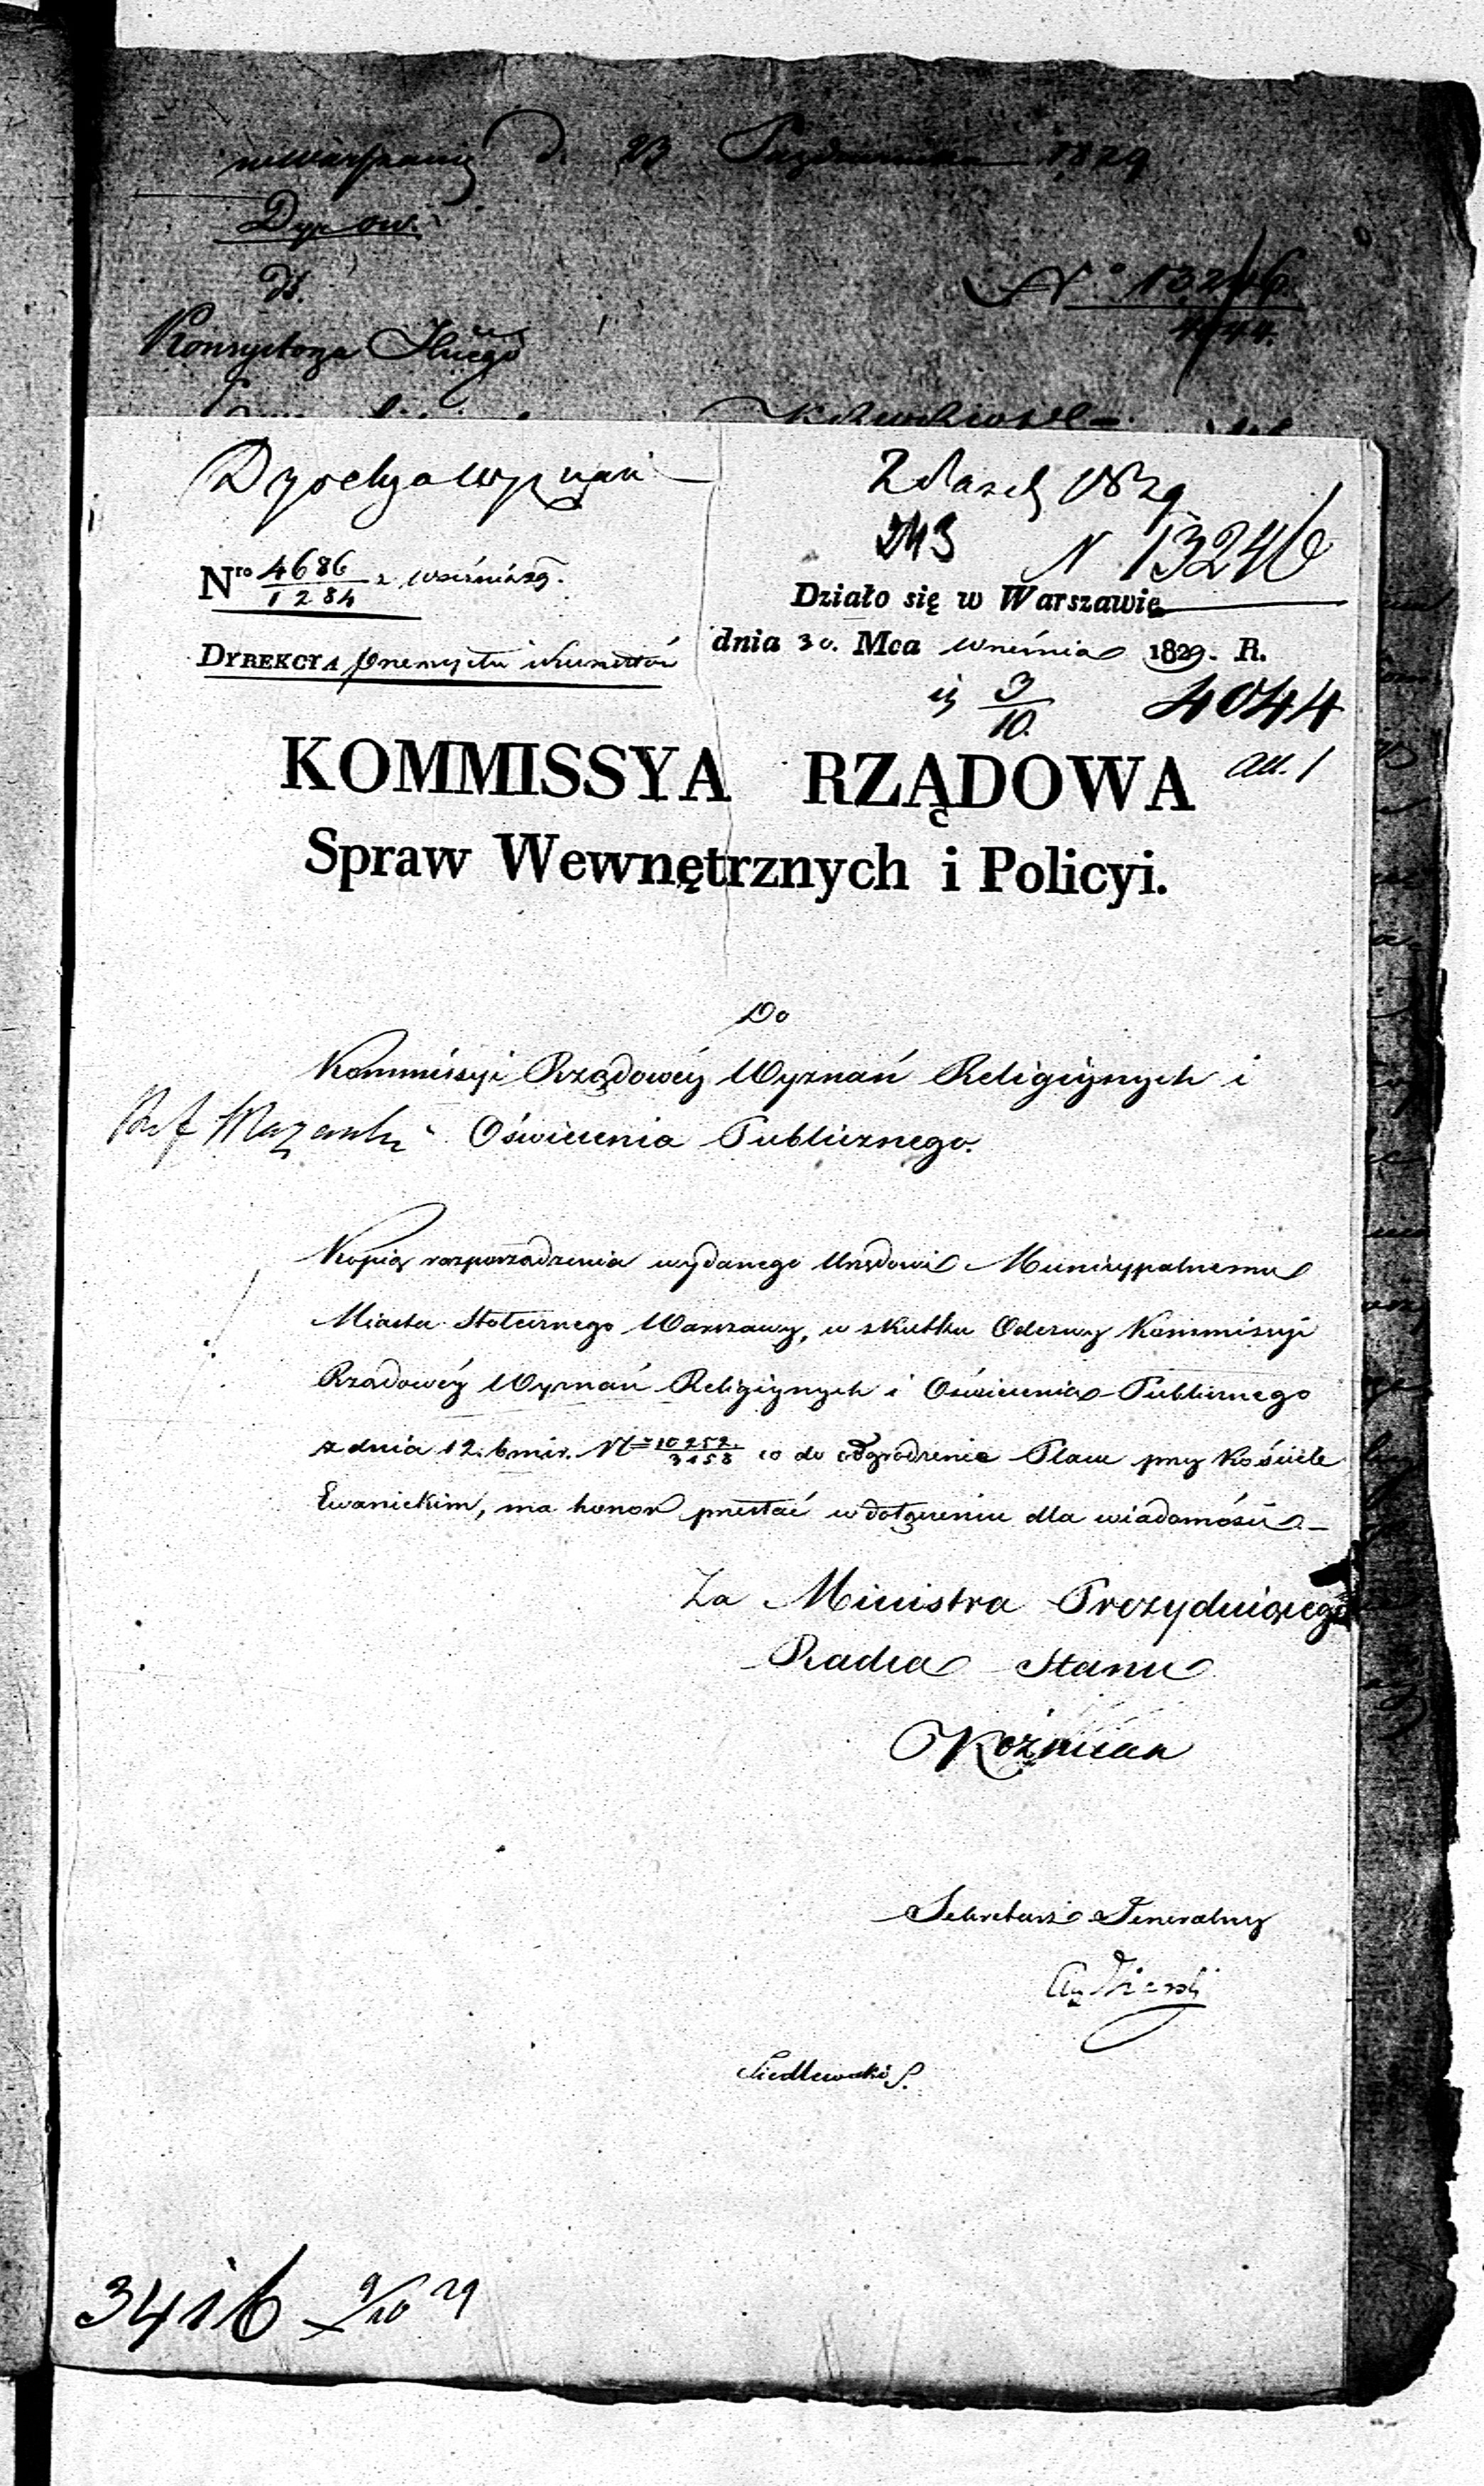 d. 23 Października 1829
No 13246
4044.
Konsystorza
Nro 4686 z wrześnía 29.
1284
243 N 13246
Działo się w Warszawie
DYREKCYA Przemysłu i Kunsztów
dnia 30. Mca Wrześnía 1829. R.
3
10.
4044
all. 1
KOMMISSYA RZĄDOWA
Spraw Wewnętrznych i Policyi.
Do
Kommissyi Rządowéy Wyznań Religiynych i
Oświecenia Publicznego.
Kopią rozporządzenia wydanego Urzędowi Municypalnemu
Miasta Stołecznego Warszawy, w skutku Odezwy Kommissyi
Rządowéy Wyznań Religiynych i Oświecenia Publicznego
z dnia 12. b mie. N 10252. co do odgrodzenia Placu przy Kościele
3158
Ewanickim, ma honor przesłać w dołączeniu dla wiadomości.
Za Ministra Prezyduiącego
Radca Stanu
Koźmian
Sekretarz Jeneralny
Siedlewski S.
3416 9/10 29